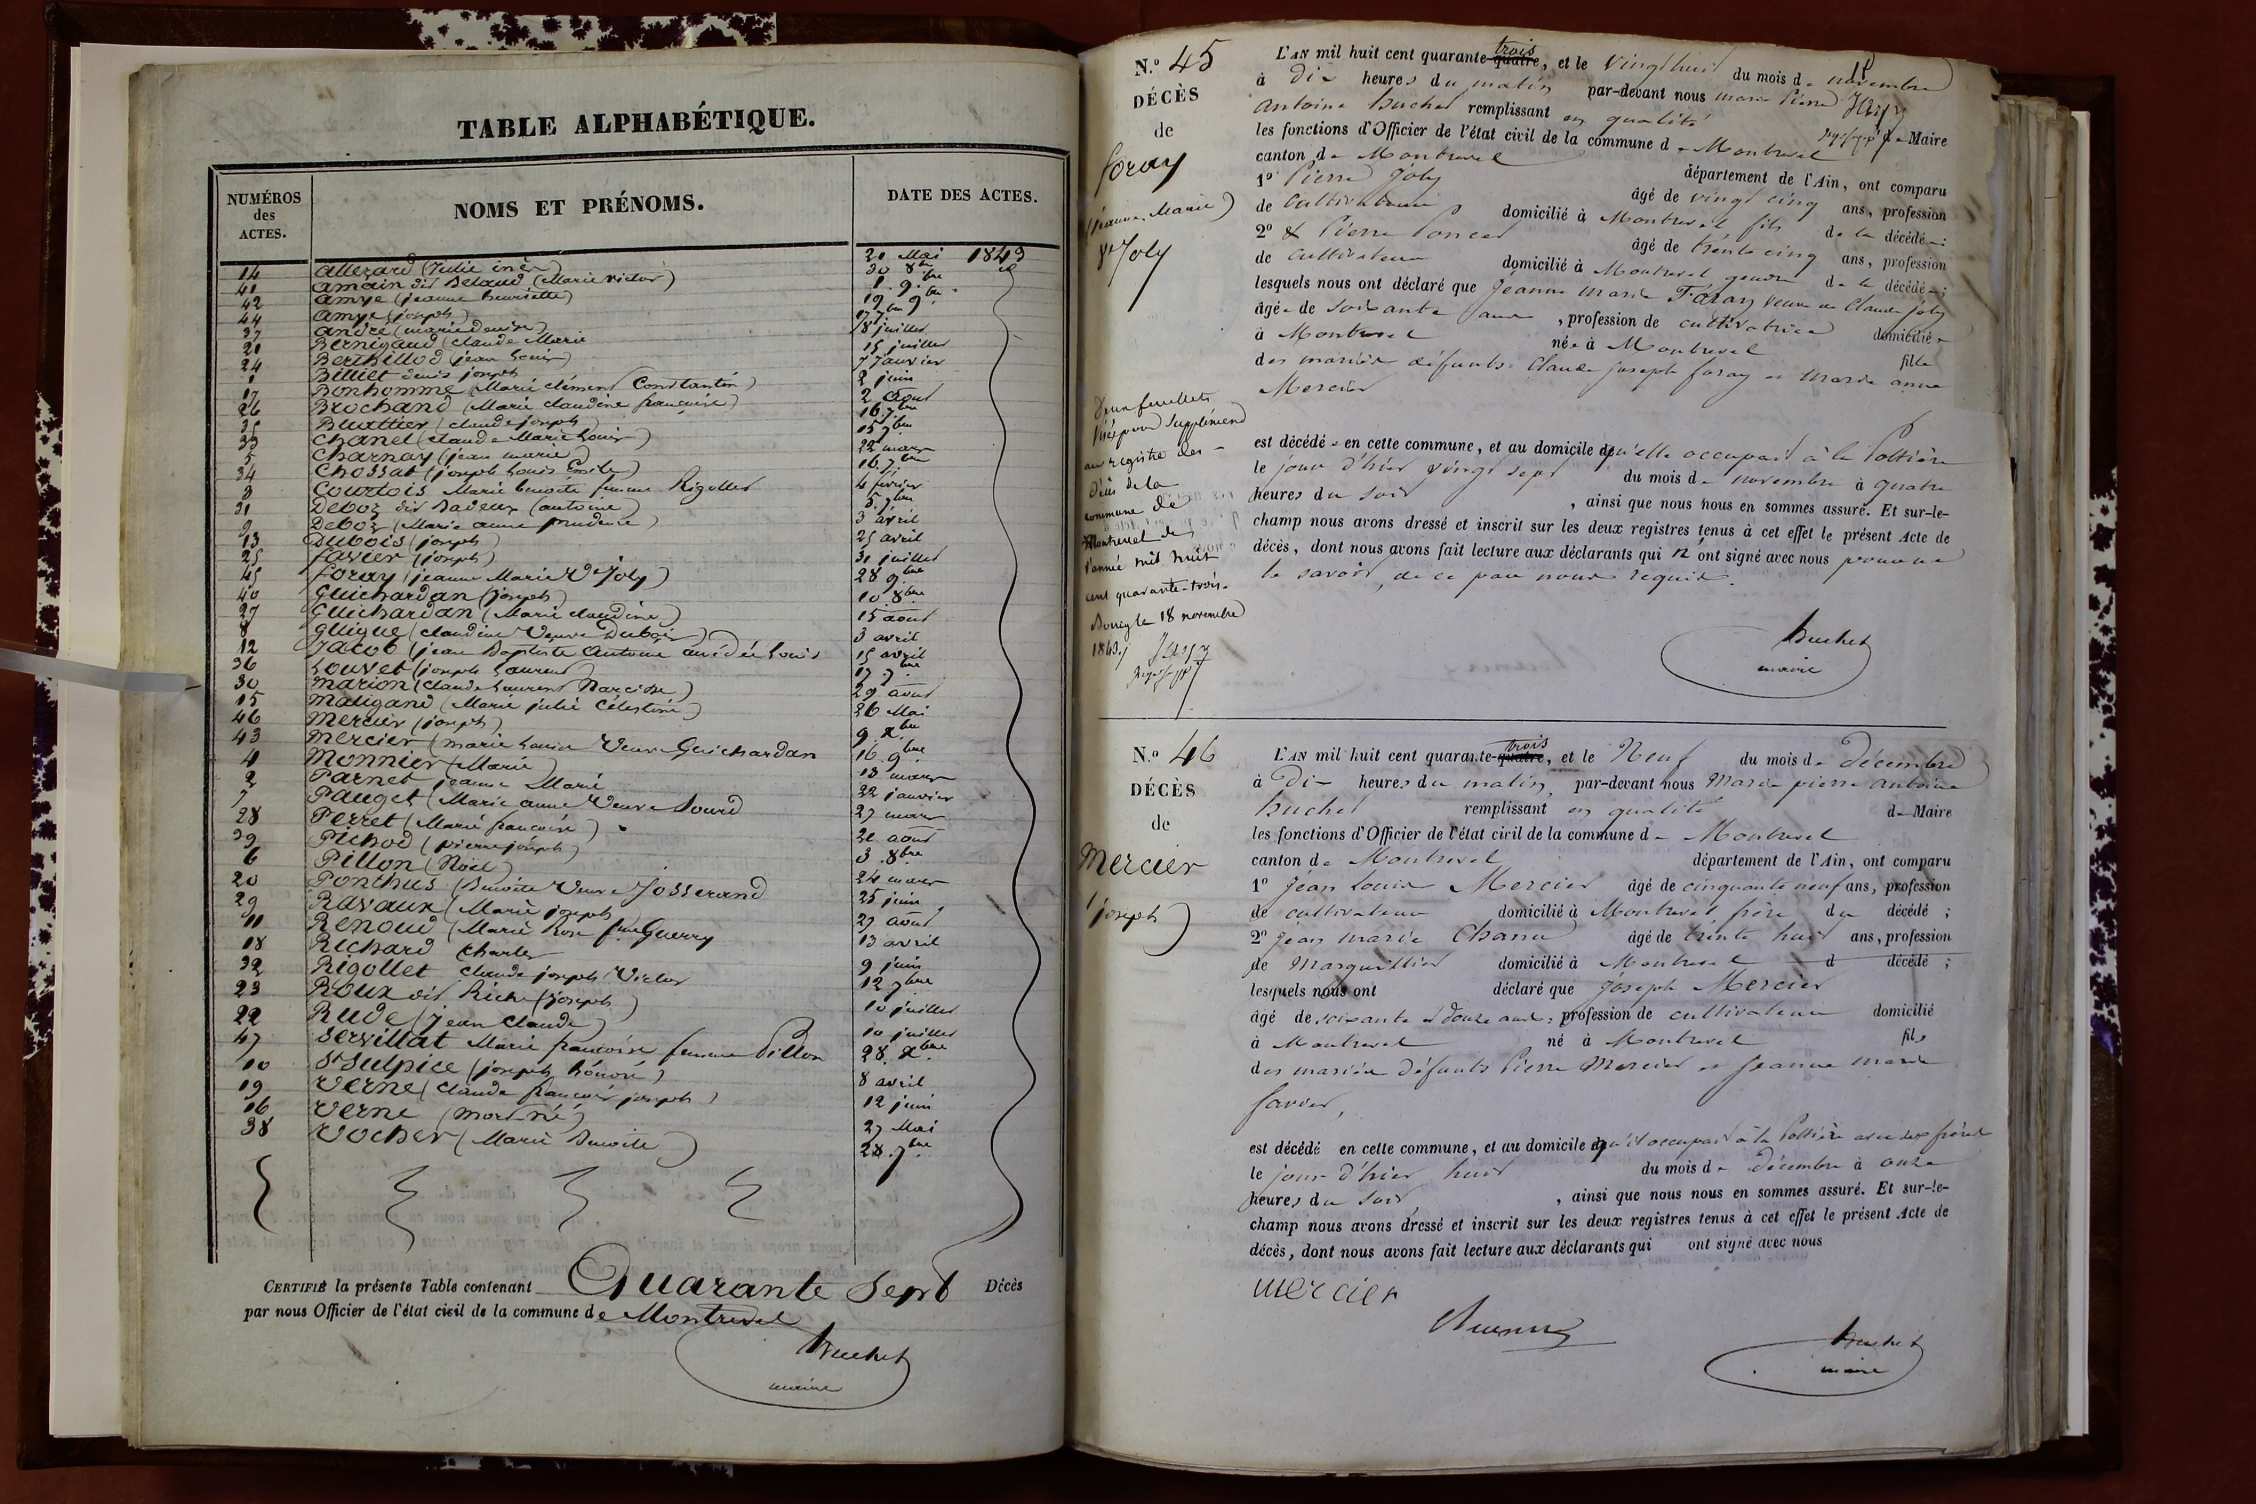 TABLE ALPHABÉTIQUE.
NUMÉROS des ACTES.
NOMS ET PRÉNOMS.
DATE DES ACTES.
14 Allezard (Julie inès) 20 Mai 1843
41 amain dit Belaud (Marie victor) 30 8bre
42 amye (jeanne henriette) 1 9bre
44 amye (joseph) 19 9bre
37 andré (marie denise) 17 7bre
21 Bernigaud (claude Marie 8 juillet
24 Berthillod (jean Louis) 15 juillet
1 Billiet denis joseph 7 Janvier
17 Bonhomme (Marie clément Constantin) 2 juin
26 Brochand (Marie claudine françoise) 2 Aout
35 Buattier (claude joseph) 16 7bre
33 Chanel (claude Marie Louis) 15 7bre
5 Charnay (jean marie) 22 mars
34 Chossat (joseph Louis Emile) 16 7bre
3 Courtois Marie benoite femme Rigollet 4 fevrier
31 Deboz dit Badeux (antoine) 5 7bre
9 Deboz (Marie anne prudence) 3 avril
13 Dubois (joseph) 25 avril
25 favier (joseph) 31 juillet
45 foray (jeanne Marie Ve Joly) 28 9bre
40 Guichardan (joseph) 10 8bre
27 Guichardan (Marie claudine) 15 aout
8 guigue (claudine Veuve Dubois) 3 avril
12 Jacob (jean Baptiste Antoine amédée Louis 15 avril
36 Louvet (joseph Laurent) 17 7bre
30 Marion (claude Laurent Narcisse) 29 aout
15 Matigand (Marie julie Célestine) 26 Mai
46 Mercier (joseph) 9 Xbre
43 Mercier (marie Louise Veuve Guichardan 16 9bre
4 Monnier (Marie) 13 mars
2 Parnet jeanne Marie 22 janvier
7 Pauget (Marie anne Veuve Sourd 27 mars
28 Perret (Marie françoise) 21 aout
39 Pichod (pierre joseph) 3 8bre
6 Pillon (Noël) 24 mars
20 Ponthus (Benoite Veuve Josserand 25 juin
29 Ravaux (Marie joseph 27 aout
11 Renoud (Marie Rose fme Guerry 13 avril
18 Richard Charles 9 juin
32 Rigollet claude joseph Victor 12 7bre
23 Roux dit Riche (joseph) 10 juillet
22 Rude (jean Claude) 10 juillet
47 Servillat Marie françoise femme Pillon 28 Xbre
10 St Sulpice (joseph honoré) 8 avril
19 Verne (claude françois joseph) 12 juin
16 Verne (mort-né) 27 Mai
38 Vocher (Marie Benoite) 28 7bre
CERTIFIÉ la présente Table contenant Quarante Sept Décès
par nous Officier de l'état civil de la commune de Montrevel
Buchet
maire
N.º 45
DÉCÈS
de
foray
(jeanne Marie)
Ve Joly
Deux feuillets
pour supplément
au registre des
Décès de la
commune de
Montrevel de
l'année mil huit
cent quarante-trois.
Bourg le 18 novembre
1843.
L'AN mil huit cent quarante-quatre trois, et le vingt huit du mois de novembre
à Dix heures du matin par-devant nous marie Pierre
antoine Buchet remplissant en qualité de Maire
les fonctions d'Officier de l'état civil de la commune de Montrevel
canton de Montrevel département de l'Ain, ont comparu
1º Pierre Joly âgé de vingt cinq ans, profession
de Cultivateur domicilié à Montrevel fils de la décédée;
2º Pierre Poncet âgé de trente cinq ans, profession
de cultivateur domicilié à Montrevel gendre de la décédée;
lesquels nous ont déclaré que Jeanne Marie Foray veuve de Claude Joly
âgée de soixante ans, profession de cultivatrice domiciliée
à Montrevel née à Montrevel fille
des mariés défunts Claude joseph foray et Marie anne
Mercier
est décédée en cette commune, et au domicile qu'elle occupait à la Poltière
le jour d'hier vingt sept du mois de novembre à quatre
heures du soir, ainsi que nous nous en sommes assuré. Et sur-le-
champ nous avons dressé et inscrit sur les deux registres tenus à cet effet le présent Acte de
décès, dont nous avons fait lecture aux déclarants qui n'ont signé avec nous pour ne
le savoir, de ce par nous requis.
Buchet
maire
N.º 46
DÉCÈS
de
Mercier
(joseph)
L'AN mil huit cent quarante-quatre trois, et le Neuf du mois de décembre
à Dix heures du matin, par-devant nous Marie pierre antoine
Buchet remplissant en qualité de Maire
les fonctions d'Officier de l'état civil de la commune de Montrevel
canton de Montrevel département de l'Ain, ont comparu
1º Jean Louis Mercier âgé de cinquante neuf ans, profession
de cultivateur domicilié à Montrevel frère du décédé;
2º Jean Marie Chanu âgé de trente huit ans, profession
de Marguillier domicilié à Montrevel d décédé;
lesquels nous ont déclaré que Joseph Mercier
âgé de soixante et douze ans, profession de cultivateur domicilié
à Montrevel né à Montrevel fils
des mariés défunts Pierre Mercier et Jeanne Marie
favier,
est décédé en cette commune, et au domicile qu'il occupait à la Poltière avec ses frères
le jour d'hier huit du mois de décembre à onze
heures du soir, ainsi que nous nous en sommes assuré. Et sur-le-
champ nous avons dressé et inscrit sur les deux registres tenus à cet effet le présent Acte de
décès, dont nous avons fait lecture aux déclarants qui ont signé avec nous
mercier
Buchet
maire